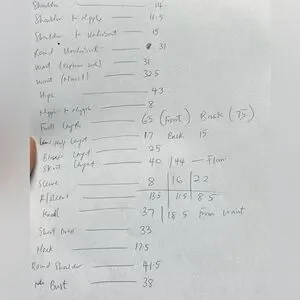 Shoulder — 14
Shoulder to Nipple — 11.5
Shoulder to Underbust — 15
Round Underbust — 31
Waist — 31
Waist (Navel) — 32.5
Hips — 43
Nipple to Nipple — 8
Full length — 63 (Front) Back (75)
Half length — 17 Back 15
Blouse lengt — 25
Skirt lengt — 40 / 44 — Floor
Sleeve — 8 | 16 | 22
R/Sleeve — 13.5 | 11.5 | 8.5
Knee — 37 / 18.5 from waist
Short Dress — 33
Neck — 17.5
Round Shoulder — 41.5
Bust — 38